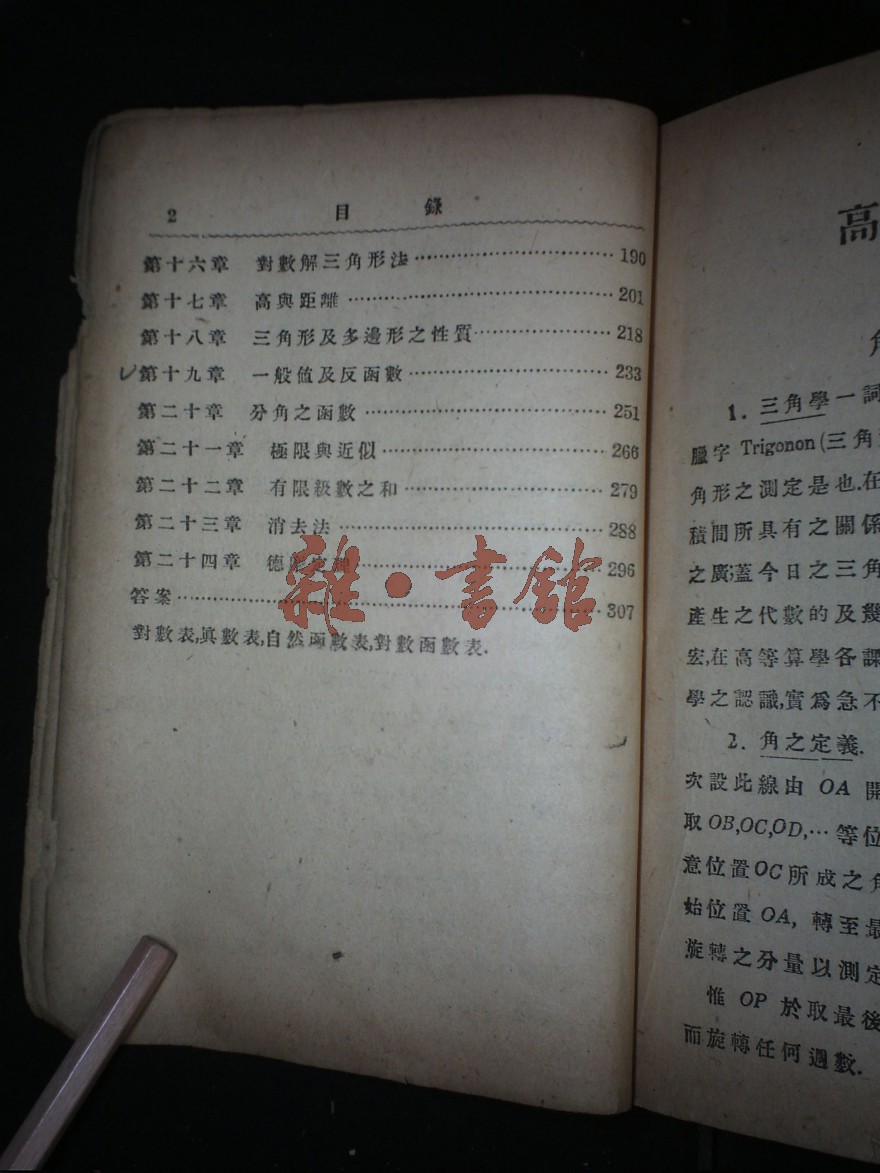 2 目錄
第十六章 對數解三角形法 190
第十七章 高與距離 201
第十八章 三角形及多邊形之性質 218
第十九章 一般値及反函數 233
第二十章 分角之函數 251
第二十一章 極限與近似 266
第二十二章 有限級數之和 279
第二十三章 消去法 288
第二十四章 德 296
答案 307
對數表,眞數表,自然函數表,對數函數表.
雜·書館
高
角
1. 三角學一詞
臘字 Trigonon(三角
角形之測定是也.在
積間所具有之關係
之廣蓋今日之三角
產生之代數的及幾
宏,在高等算學各課
學之認識,實爲急不
2. 角之定義.
次設此線由 OA 開
取OB,OC,OD,…等位
意位置OC所成之角
始位置OA, 轉至最
旋轉之分量以測定
惟 OP 於取最後
而旋轉任何週數.